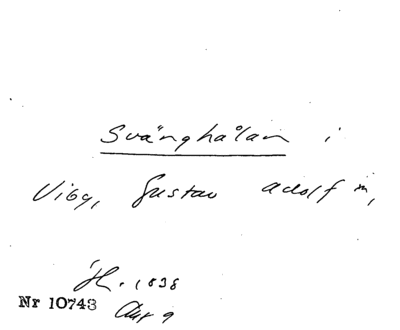 Svänghålan i
Viby, Gustav Adolf m,
1838
Nr 10743